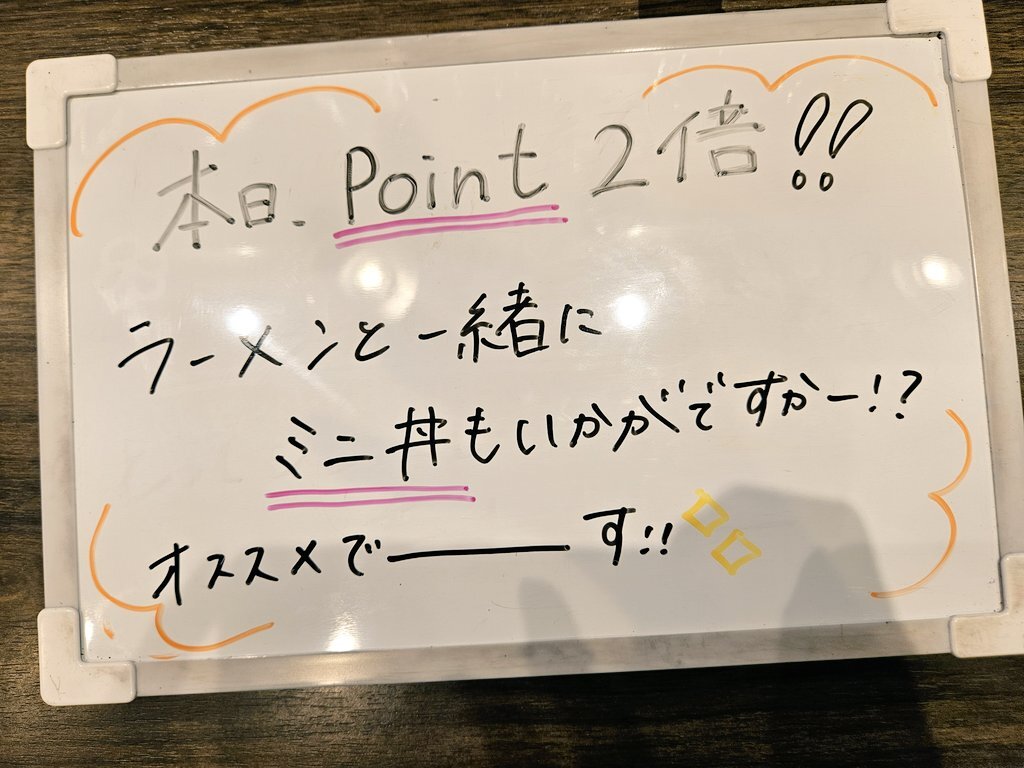 本日、Point 2倍!!
ラーメンと一緒に
ミニ丼もいかがですかー!?
オススメで――――す!!